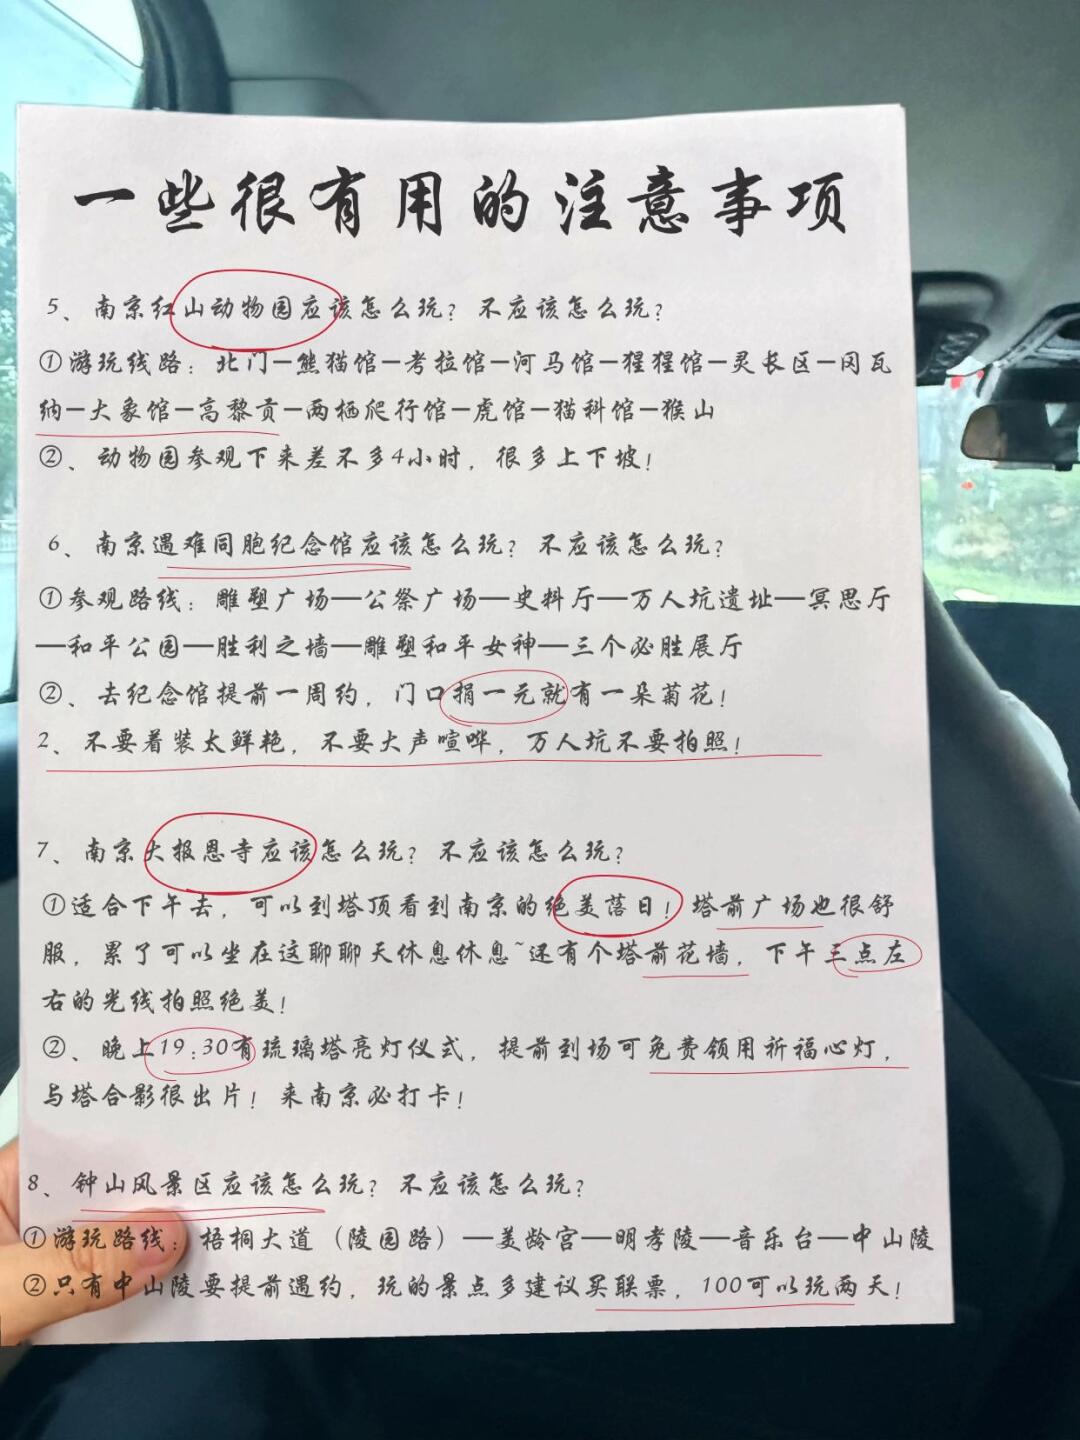 一些很有用的注意事项
5、南京红山动物园应该怎么玩？不应该怎么玩？
①游玩线路：北门—熊猫馆—考拉馆—河马馆—猩猩馆—灵长区—冈瓦
纳—大象馆—高黎贡—两栖爬行馆—虎馆—猫科馆—猴山
②、动物园参观下来差不多4小时，很多上下坡！
6、南京遇难同胞纪念馆应该怎么玩？不应该怎么玩？
①参观路线：雕塑广场—公祭广场—史料厅—万人坑遗址—冥思厅
—和平公园—胜利之墙—雕塑和平女神—三个必胜展厅
②、去纪念馆提前一周约，门口捐一元就有一朵菊花！
2、不要着装太鲜艳，不要大声喧哗，万人坑不要拍照！
7、南京大报恩寺应该怎么玩？不应该怎么玩？
①适合下午去，可以到塔顶看到南京的绝美落日！塔前广场也很舒
服，累了可以坐在这聊聊天休息休息~还有个塔前花墙，下午三点左
右的光线拍照绝美！
②、晚上19:30有琉璃塔亮灯仪式，提前到场可免费领用祈福心灯，
与塔合影很出片！来南京必打卡！
8、钟山风景区应该怎么玩？不应该怎么玩？
①游玩路线：梧桐大道（陵园路）—美龄宫—明孝陵—音乐台—中山陵
②只有中山陵要提前遇约，玩的景点多建议买联票，100可以玩两天！